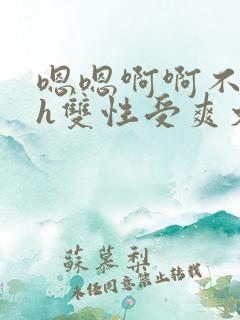 嗯嗯啊啊不
h雙性受爽
蘇慕梨
未经同意禁止转载